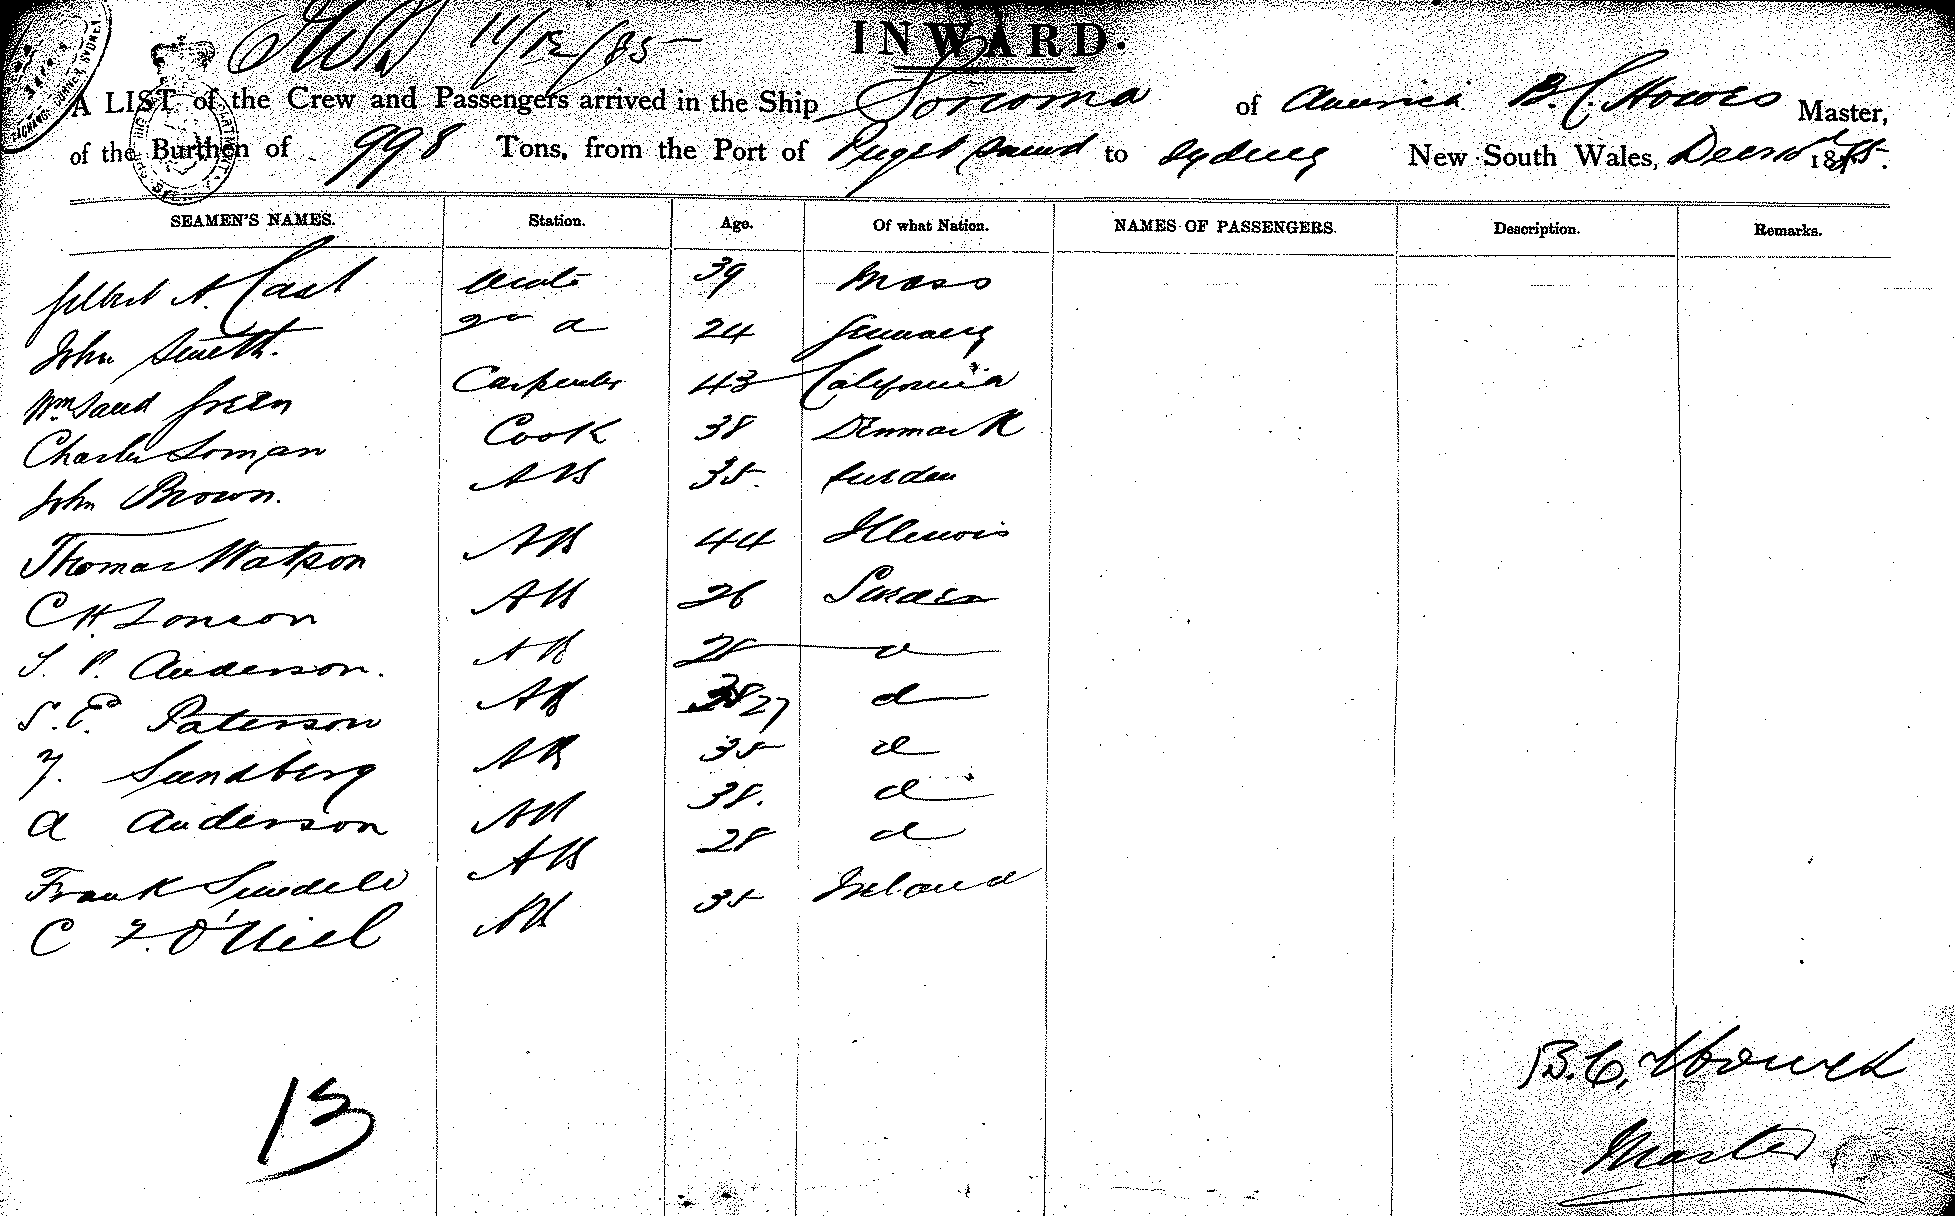 11/12/85
INWARD.
A LIST of the Crew and Passengers arrived in the Ship Sonoma of America B. C. Howes Master,
of the Burthen of 998 Tons, from the Port of Puget Sound to Sydney New South Wales, Decr 10 1885.
SEAMEN'S NAMES. Station. Age. Of what Nation. NAMES OF PASSENGERS. Description. Remarks.
Gilbert A. Mate 39 Mass
John Smith. 2nd d 24 Germany
Wm Green Carpenter 43 California
Charles Loman Cook 38 Denmark
John Brown. AB 35. Sweden
Thomas Watson AB 44 Illinois
C H. AB 26 Sweden
P. Anderson. AB 28 d
S. E. Paterson AB 27 d
F. Sundberg AB 35 d
A Anderson AB 38. d
Frank Sundell AB 28 d
C F. O'Niel AB 35 Ireland
13
B. C. Howes
Master